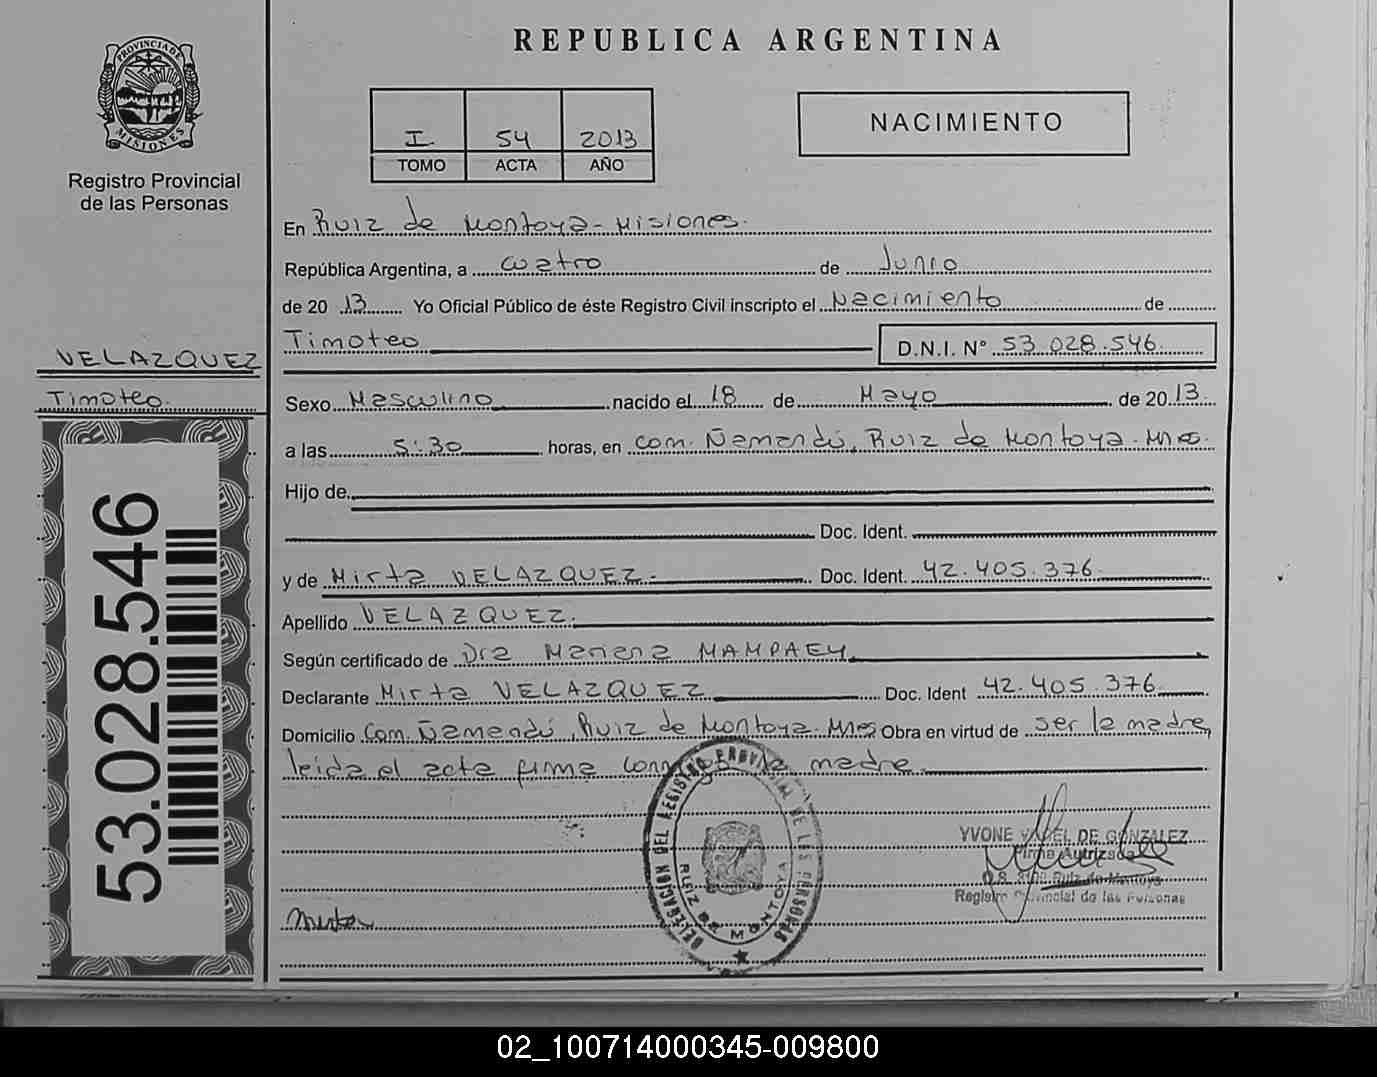 REPUBLICA ARGENTINA
PROVINCIA DE MISIONES
Registro Provincial
de las Personas
I 54 2013
TOMO ACTA AÑO
NACIMIENTO
En Ruiz de Montoya - Misiones.
República Argentina, a cuatro de Junio
de 20 13 Yo Oficial Público de éste Registro Civil inscripto el Nacimiento de
Timoteo D.N.I. N° 53.028.546.
VELAZQUEZ
Timoteo.
Sexo Masculino nacido el 18 de Mayo de 20 13.
a las 5:30 horas, en com. Ñamandú, Ruiz de Montoya - Mnes.
Hijo de
Doc. Ident.
y de Mirta VELAZQUEZ.- Doc. Ident. 42.405.376
Apellido VELAZQUEZ.
Según certificado de Dra Mariana MAMPAEY
Declarante Mirta VELAZQUEZ Doc. Ident 42.405.376
Domicilio Com. Ñamandú, Ruiz de Montoya - Mnes Obra en virtud de ser la madre,
leida el acta firma conmigo la madre.
53.028.546
DELEGACION DEL REGISTRO PROVINCIAL DE LAS PERSONAS
RUIZ DE MONTOYA
YVONE YAPEL DE GONZALEZ
Firma Autrizada
Ruiz de Montoya
Registro Provincial de las Personas
Mirta
02_100714000345-009800